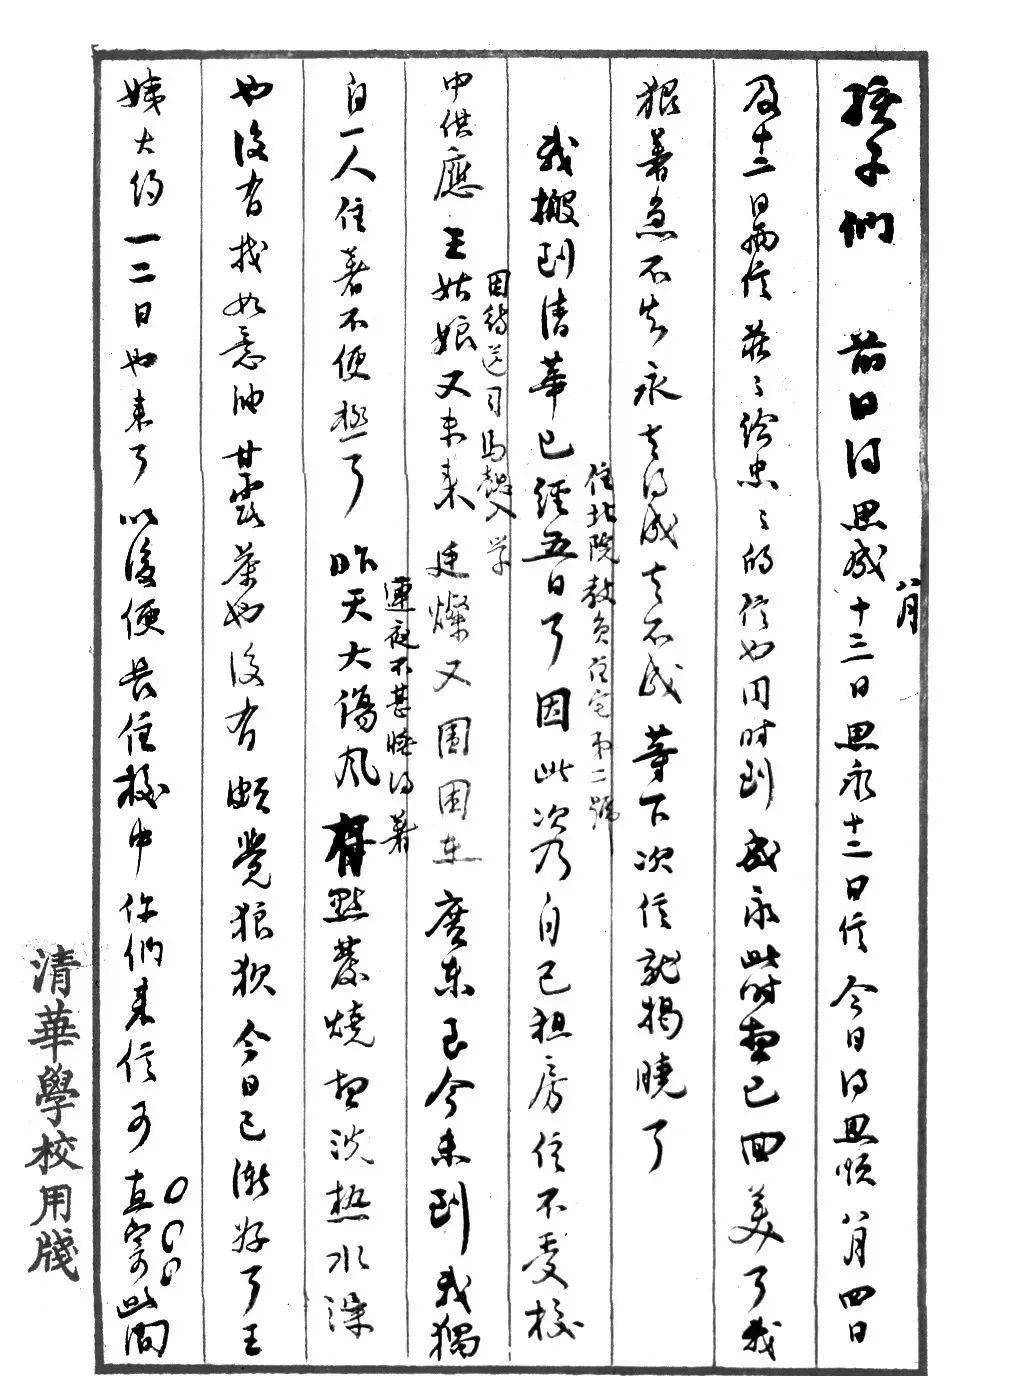 孩子們　前日得思成八月十三日思永十二日信今日得思順八月四日
及十二日兩信莊莊給忠忠的信也同時到成永此時想已回美了我
狠著急不知永去得成去不成等下次信就揭曉了
我搬到清華已經五日了住北院教員住宅第二號因此次乃自己租房住不受校
中供應王姑娘又未來因待送司馬懿入學廷燦又圍困在廣東至今未到我獨
自一人住著不便極了昨天大傷風連夜不甚睡得著有點發燒想洗熱水澡
也沒有找如意油甘露茶也沒有頗覺狼狽今日已漸好了王
姨大約一二日也來了以後便長住校中你們來信可直寄此間
清華學校用牋